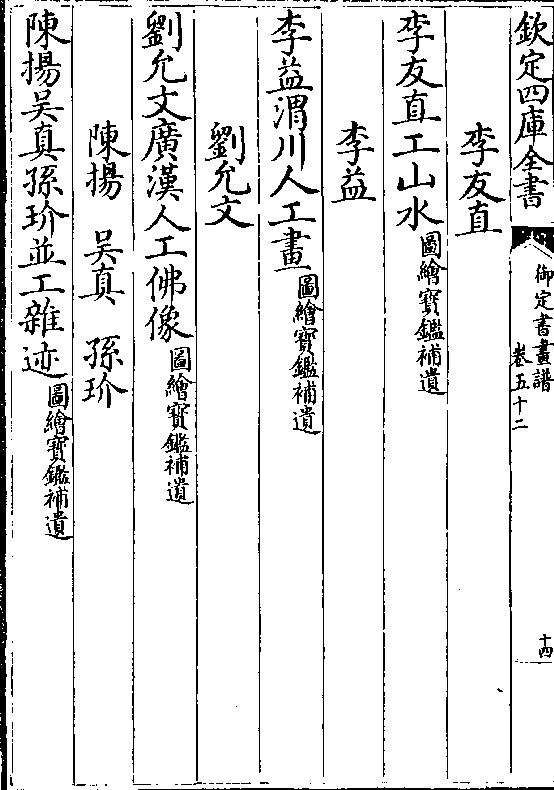 欽定四庫全書
御定書畫譜
卷五十二
十四
李友直
李友直工山水圖繪寶鑑補遺
李益
李益渭川人工畫圖繪寶鑑補遺
劉允文
劉允文廣漢人工佛像圖繪寶鑑補遺
陳揚　吳真　孫玠
陳揚吳真孫玠並工雜迹圖繪寶鑑補遺